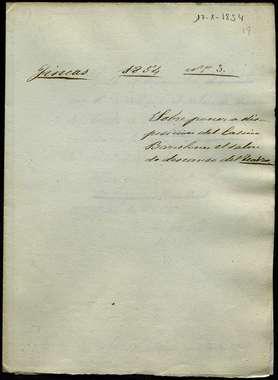 17-X-1854
19
Fincas 1854 nº 3.
Sobre poner a dis-
posicion del Casino
Barcelones el salon
de descanso del Teatro